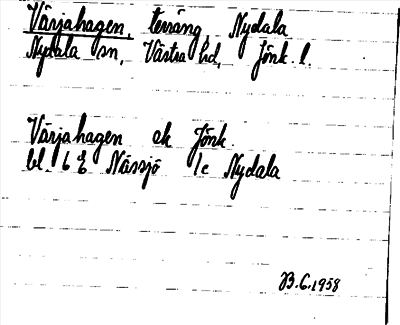 Värjahagen, terräng, Nydala
Nydala sn, Västra hd, Jönk. l.
Värjahagen ek Jönk.
bl. 6 E Nässjö 1c Nydala
B.G. 1958